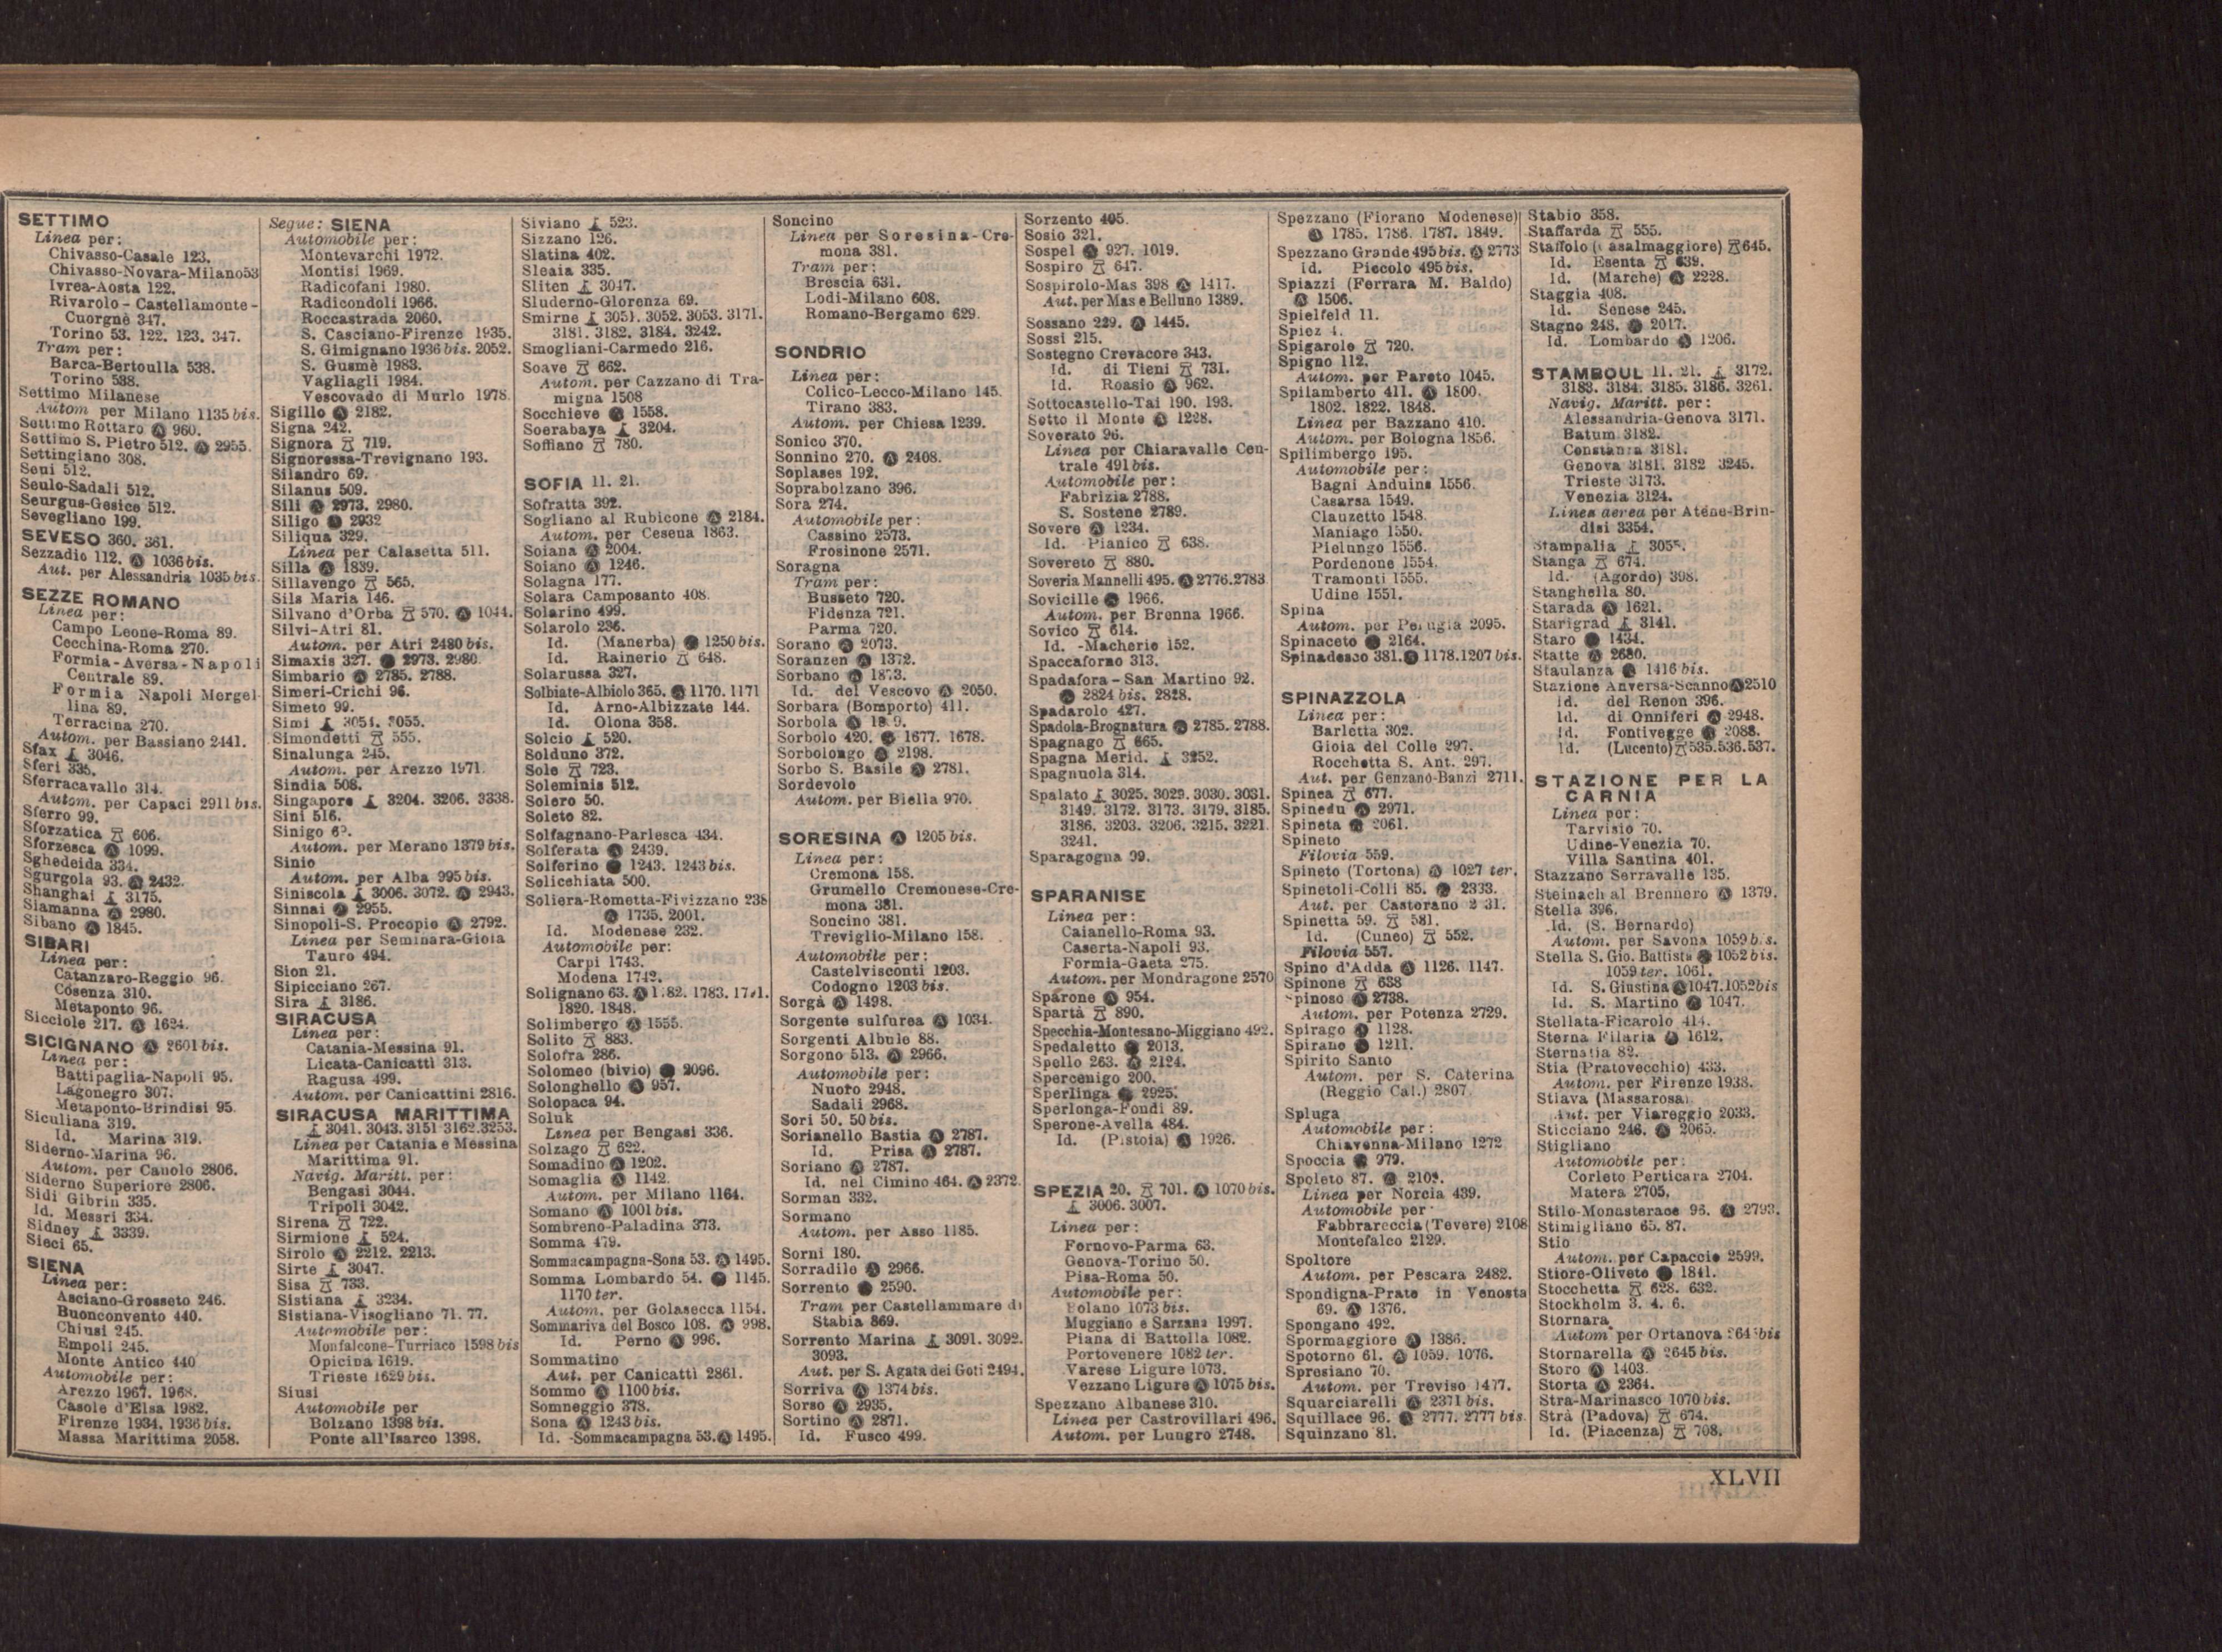 SETTIMO
Linea per:
Chivasso-Casale 123.
Chivasso-Novara-Milano 53
Ivrea-Aosta 122.
Rivarolo-Castellamonte-
Cuorgnè 347.
Torino 53. 122. 123. 347.
Tram per:
Barca-Bertoulla 538.
Torino 538.
Settimo Milanese
Autom per Milano 1135 bis.
Settimo Rottaro Ⓐ 960.
Settimo S. Pietro 512. Ⓐ 2955.
Settingiano 308.
Seui 512.
Seulo-Sadali 512.
Seurgus-Gesico 512.
Sevegliano 199.
SEVESO 360. 361.
Sezzadio 112. Ⓐ 1036 bis.
Aut. per Alessandria 1035 bis.
SEZZE ROMANO
Linea per:
Campo Leone-Roma 89.
Cecchina-Roma 270.
Formia-Aversa-Napoli
Centrale 89.
Formia Napoli Mergel
lina 89.
Terracina 270.
Autom. per Bassiano 2441.
Sfax 3046.
Sferi 335.
Sferracavallo 314.
Autom. per Capaci 2911 bis.
Sferro 99.
Sforzatica 606.
Sforzesca Ⓐ 1099.
Sghedeida 334.
Sgurgola 93. Ⓐ 2432.
Shanghai 3175.
Siamanna Ⓐ 2980.
Sibano Ⓐ 1845.
SIBARI
Linea per:
Catanzaro-Reggio 96.
Cosenza 310.
Metaponto 96.
Sicciole 217. Ⓐ 1624.
SICIGNANO Ⓐ 2601 bis.
Linea per:
Battipaglia-Napoli 95.
Lagonegro 307.
Metaponto-Brindisi 95.
Siculiana 319.
Id. Marina 319.
Siderno-Marina 96.
Autom. per Canolo 2806.
Siderno Superiore 2806.
Sidi Gibrin 335.
Id. Messri 334.
Sidney 3339.
Sieci 65.
SIENA
Linea per:
Asciano-Grosseto 246.
Buonconvento 440.
Chiusi 245.
Empoli 245.
Monte Antico 440
Automobile per:
Arezzo 1967. 1968.
Casole d'Elsa 1982.
Firenze 1934. 1936 bis.
Massa Marittima 2058.
Segue: SIENA
Automobile per:
Montevarchi 1972.
Montisi 1969.
Radicofani 1980.
Radicondoli 1966.
Roccastrada 2060.
S. Casciano-Firenze 1935.
S. Gimignano 1936 bis. 2052.
S. Gusmè 1983.
Vagliagli 1984.
Vescovado di Murlo 1978.
Sigillo Ⓐ 2182.
Signa 242.
Signora 719.
Signoressa-Trevignano 193.
Silandro 69.
Silanus 509.
Sili Ⓐ 2973. 2980.
Siligo Ⓐ 2932
Siliqua 329.
Linea per Calasetta 511.
Silla Ⓐ 1839.
Sillavengo 565.
Sils Maria 146.
Silvano d'Orba 570. Ⓐ 1044.
Silvi-Atri 81.
Autom. per Atri 2480 bis.
Simaxis 327. Ⓐ 2973. 2980.
Simbario Ⓐ 2785. 2788.
Simeri-Crichi 96.
Simeto 99.
Simi 3054. 3055.
Simondetti 555.
Sinalunga 245.
Autom. per Arezzo 1971.
Sindia 508.
Singapore 3204. 3206. 3338.
Sini 516.
Sinigo
Autom. per Merano 1379 bis.
Sinio
Autom. per Alba 995 bis.
Siniscola 3006. 3072. Ⓐ 2943.
Sinnai Ⓐ 2955.
Sinopoli-S. Procopio Ⓐ 2792.
Linea per Seminara-Gioia
Tauro 494.
Sion 21.
Sipicciano 267.
Sira 3186.
SIRACUSA
Linea per:
Catania-Messina 91.
Licata-Canicattì 313.
Ragusa 499.
Autom. per Canicattini 2816.
SIRACUSA MARITTIMA
3041. 3043. 3151 3162.3253.
Linea per Catania e Messina
Marittima 91.
Navig. Maritt. per:
Bengasi 3044.
Tripoli 3042.
Sirena 722.
Sirmione 524.
Sirolo Ⓐ 2212. 2213.
Sirte 3047.
Sisa 733.
Sistiana 3234.
Sistiana-Visogliano 71. 77.
Automobile per:
Monfalcone-Turriaco 1598 bis
Opicina 1619.
Trieste 1629 bis.
Siusi
Automobile per
Bolzano 1398 bis.
Ponte all'Isarco 1398.
Siviano 523.
Sizzano 126.
Slatina 402.
Sleaia 335.
Sliten 3047.
Sluderno-Glorenza 69.
Smirne 3051. 3052. 3053. 3171.
3181. 3182. 3184. 3242.
Smogliani-Carmedo 216.
Soave 662.
Autom. per Cazzano di Tra-
migna 1508
Socchieve Ⓐ 1558.
Soerabaya 3204.
Soffiano 780.
SOFIA 11. 21.
Sofratta 392.
Sogliano al Rubicone Ⓐ 2184.
Autom. per Cesena 1863.
Soiana Ⓐ 2004.
Soiano Ⓐ 1246.
Solagna 177.
Solara Camposanto 408.
Solarino 499.
Solarolo 236.
Id. (Manerba) Ⓐ 1250 bis.
Id. Rainerio 648.
Solarussa 327.
Solbiate-Albiolo 365. Ⓐ 1170. 1171
Id. Arno-Albizzate 144.
Id. Olona 358.
Solcio 520.
Solduno 372.
Sole 723.
Soleminis 512.
Solero 50.
Soleto 82.
Solfagnano-Parlesca 434.
Solferata Ⓐ 2439.
Solferino Ⓐ 1243. 1243 bis.
Solicchiata 500.
Soliera-Rometta-Fivizzano 238
Ⓐ 1735. 2001.
Id. Modenese 232.
Automobile per:
Carpi 1743.
Modena 1742.
Solignano 63. Ⓐ 1783.
1820. 1848.
Solimbergo Ⓐ 1555.
Solito 883.
Solofra 286.
Solomeo (bivio) Ⓐ 2096.
Solonghello Ⓐ 957.
Solopaca 94.
Soluk
Linea per Bengasi 336.
Solzago 622.
Somadino Ⓐ 1202.
Somaglia Ⓐ 1142.
Autom. per Milano 1164.
Somano Ⓐ 1001 bis.
Sombreno-Paladina 373.
Somma 479.
Sommacampagna-Sona 53. Ⓐ 1495.
Somma Lombardo 54. Ⓐ 1145.
1170 ter.
Autom. per Golasecca 1154.
Sommariva del Bosco 108. Ⓐ 998.
Id. Perno Ⓐ 996.
Sommatino
Aut. per Canicattì 2861.
Sommo Ⓐ 1100 bis.
Somneggio 378.
Sona Ⓐ 1243 bis.
Id. -Sommacampagna 53. Ⓐ 1495.
Soncino
Linea per Soresina-Cre-
mona 381.
Tram per:
Brescia 631.
Lodi-Milano 608.
Romano-Bergamo 629.
SONDRIO
Linea per:
Colico-Lecco-Milano 145.
Tirano 383.
Autom. per Chiesa 1239.
Sonico 370.
Sonnino 270. Ⓐ 2408.
Soplases 192.
Soprabolzano 396.
Sora 274.
Automobile per:
Cassino 2573.
Frosinone 2571.
Soragna
Tram per:
Busseto 720.
Fidenza 721.
Parma 720.
Sorano Ⓐ 2073.
Soranzen Ⓐ 1372.
Sorbano Ⓐ 1873.
Id. del Vescovo Ⓐ 2050.
Sorbara (Bomporto) 411.
Sorbola Ⓐ
Sorbolo 420. Ⓐ 1677. 1678.
Sorbolongo Ⓐ 2198.
Sorbo S. Basile Ⓐ 2781.
Sordevolo
Autom. per Biella 970.
SORESINA Ⓐ 1205 bis.
Linea per:
Cremona 158.
Grumello Cremonese-Cre-
mona 381.
Soncino 381.
Treviglio-Milano 158.
Automobile per:
Castelvisconti 1203.
Codogno 1203 bis.
Sorgà Ⓐ 1498.
Sorgente sulfurea Ⓐ 1034.
Sorgenti Albule 88.
Sorgono 513. Ⓐ 2966.
Automobile per:
Nuoro 2948.
Sadali 2968.
Sori 50. 50 bis.
Sorianello Bastia Ⓐ 2787.
Id. Prisa Ⓐ 2787.
Soriano Ⓐ 2787.
Id. nel Cimino 464. Ⓐ 2372.
Sorman 332.
Sormano
Autom. per Asso 1185.
Sorni 180.
Sorradile Ⓐ 2966.
Sorrento Ⓐ 2590.
Tram per Castellammare di
Stabia 869.
Sorrento Marina 3091. 3092.
3093.
Aut. per S. Agata dei Goti 2494.
Sorriva Ⓐ 1374 bis.
Sorso Ⓐ 2935.
Sortino Ⓐ 2871.
Id. Fusco 499.
Sorzento 405.
Sosio 321.
Sospel Ⓐ 927. 1019.
Sospiro 647.
Sospirolo-Mas 398 Ⓐ 1417.
Aut. per Mas e Belluno 1389.
Sossano 229. Ⓐ 1445.
Sossi 215.
Sostegno Crevacore 343.
Id. di Tieni 731.
Id. Roasio Ⓐ 962.
Sottocastello-Tai 190. 193.
Sotto il Monte Ⓐ 1228.
Soverato 96.
Linea per Chiaravalle Cen-
trale 491 bis.
Automobile per:
Fabrizia 2788.
S. Sostene 2789.
Sovere Ⓐ 1234.
Id. Pianico 638.
Sovereto 880.
Soveria Mannelli 495. Ⓐ 2776.2783
Sovicille Ⓐ 1966.
Autom. per Brenna 1966.
Sovico 614.
Id. -Macherio 152.
Spaccaforno 313.
Spadafora-San Martino 92.
Ⓐ 2824 bis. 2828.
Spadarolo 427.
Spadola-Brognatura Ⓐ 2785. 2788.
Spagnago 665.
Spagna Merid. 3252.
Spagnuola 314.
Spalato 3025. 3029. 3030. 3031.
3149. 3172. 3173. 3179. 3185.
3186. 3203. 3206. 3215. 3221.
3241.
Sparagogna 99.
SPARANISE
Linea per:
Caianello-Roma 93.
Caserta-Napoli 93.
Formia-Gaeta 275.
Autom. per Mondragone 2570
Sparone Ⓐ 954.
Spartà 890.
Specchia-Montesano-Miggiano 492.
Spedaletto Ⓐ 2013.
Spello 263. Ⓐ 2124.
Spercenigo 200.
Sperlinga Ⓐ 2925.
Sperlonga-Fondi 89.
Sperone-Avella 484.
Id. (Pistoia) Ⓐ 1926.
SPEZIA 20. 701. Ⓐ 1070 bis.
3006. 3007.
Linea per:
Fornovo-Parma 63.
Genova-Torino 50.
Pisa-Roma 50.
Automobile per:
Bolano 1073 bis.
Muggiano e Sarzana 1997.
Piana di Battolla 1082.
Portovenere 1082 ter.
Varese Ligure 1073.
Vezzano Ligure Ⓐ 1075 bis.
Spezzano Albanese 310.
Linea per Castrovillari 496.
Autom. per Lungro 2748.
Spezzano (Fiorano Modenese)
Ⓐ 1785. 1786. 1787. 1849.
Spezzano Grande 495 bis. Ⓐ 2773
Id. Piccolo 495 bis.
Spiazzi (Ferrara M. Baldo)
Ⓐ 1506.
Spielfeld 11.
Spiez 4.
Spigarole 720.
Spigno 112.
Autom. per Pareto 1045.
Spilamberto 411. Ⓐ 1800.
1802. 1822. 1848.
Linea per Bazzano 410.
Autom. per Bologna 1856.
Spilimbergo 195.
Automobile per:
Bagni Anduins 1556.
Casarsa 1549.
Clauzetto 1548.
Maniago 1550.
Pielungo 1556.
Pordenone 1554.
Tramonti 1555.
Udine 1551.
Spina
Autom. per Perugia 2095.
Spinaceto Ⓐ 2164.
Spinadesco 381. Ⓐ 1178.1207 bis.
SPINAZZOLA
Linea per:
Barletta 302.
Gioia del Colle 297.
Rocchetta S. Ant. 297.
Aut. per Genzano-Banzi 2711.
Spinea 677.
Spinedu Ⓐ 2971.
Spineta Ⓐ 2061.
Spineto
Filovia 559.
Spineto (Tortona) Ⓐ 1027 ter.
Spinetoli-Colli 85. Ⓐ 2333.
Aut. per Castorano
Spinetta 59. 581.
Id. (Cuneo) 552.
Filovia 557.
Spino d'Adda Ⓐ 1126. 1147.
Spinone 638
Spinoso Ⓐ 2738.
Autom. per Potenza 2729.
Spirago Ⓐ 1128.
Spirano Ⓐ 1211.
Spirito Santo
Autom. per S. Caterina
(Reggio Cal.) 2807.
Spluga
Automobile per:
Chiavenna-Milano 1272
Spoccia Ⓐ 979.
Spoleto 87. Ⓐ
Linea per Norcia 439.
Automobile per
Fabbrareccia (Tevere) 2108
Montefalco 2129.
Spoltore
Autom. per Pescara 2482.
Spondigna-Prato in Venosta
69. Ⓐ 1376.
Spongano 492.
Spormaggiore Ⓐ 1386.
Spotorno 61. Ⓐ 1059. 1076.
Spresiano 70.
Autom. per Treviso 1477.
Squarciarelli Ⓐ 2371 bis.
Squillace 96. Ⓐ 2777. 2777 bis
Squinzano 81.
Stabio 358.
Staffarda 555.
Staffolo (Casalmaggiore) 645.
Id. Esenta 639.
Id. (Marche) Ⓐ 2228.
Staggia 408.
Id. Senese 245.
Stagno 248. Ⓐ 2017.
Id. Lombardo Ⓐ 1206.
STAMBOUL 11. 21. 3172.
3183. 3184. 3185. 3186. 3261.
Navig. Maritt. per:
Alessandria-Genova 3171.
Batum 3182.
Constanza 3181.
Genova 3181. 3182 3245.
Trieste 3173.
Venezia 3124.
Linea aerea per Atene-Brin-
disi 3354.
Stampalia
Stanga 674.
Id. (Agordo) 398.
Stanghella 80.
Starada Ⓐ 1621.
Starigrad 3141.
Staro Ⓐ 1434.
Statte Ⓐ 2680.
Staulanza Ⓐ 1416 bis.
Stazione Anversa-Scanno Ⓐ 2510
Id. del Renon 396.
Id. di Onniferi Ⓐ 2948.
Id. Fontivegge Ⓐ 2088.
Id. (Lucento) 535.536.537.
STAZIONE PER LA
CARNIA
Linea per:
Tarvisio 70.
Udine-Venezia 70.
Villa Santina 401.
Stazzano Serravalle 135.
Steinach al Brennero Ⓐ 1379.
Stella 396.
Id. (S. Bernardo)
Autom. per Savona 1059 bis.
Stella S. Gio. Battista Ⓐ 1052 bis.
1059 ter. 1061.
Id. S. Giustina Ⓐ 1047.1052 bis
Id. S. Martino Ⓐ 1047.
Stellata-Ficarolo 414.
Sterna Filaria Ⓐ 1612.
Sternatia 82.
Stia (Pratovecchio) 433.
Autom. per Firenze 1938.
Stiava (Massarosa)
Aut. per Viareggio 2033.
Sticciano 246. Ⓐ 2065.
Stigliano
Automobile per:
Corleto Perticara 2704.
Matera 2705.
Stilo-Monasterace 96. Ⓐ 2793.
Stimigliano 65. 87.
Stio
Autom. per Capaccio 2599.
Stiore-Oliveto Ⓐ 1841.
Stocchetta 628. 632.
Stockholm 3. 4. 6.
Stornara
Autom per Ortanova
Stornarella Ⓐ 2645 bis.
Storo Ⓐ 1403.
Storta Ⓐ 2364.
Stra-Marinasco 1070 bis.
Strà (Padova) 674.
Id. (Piacenza) 708.
XLVII